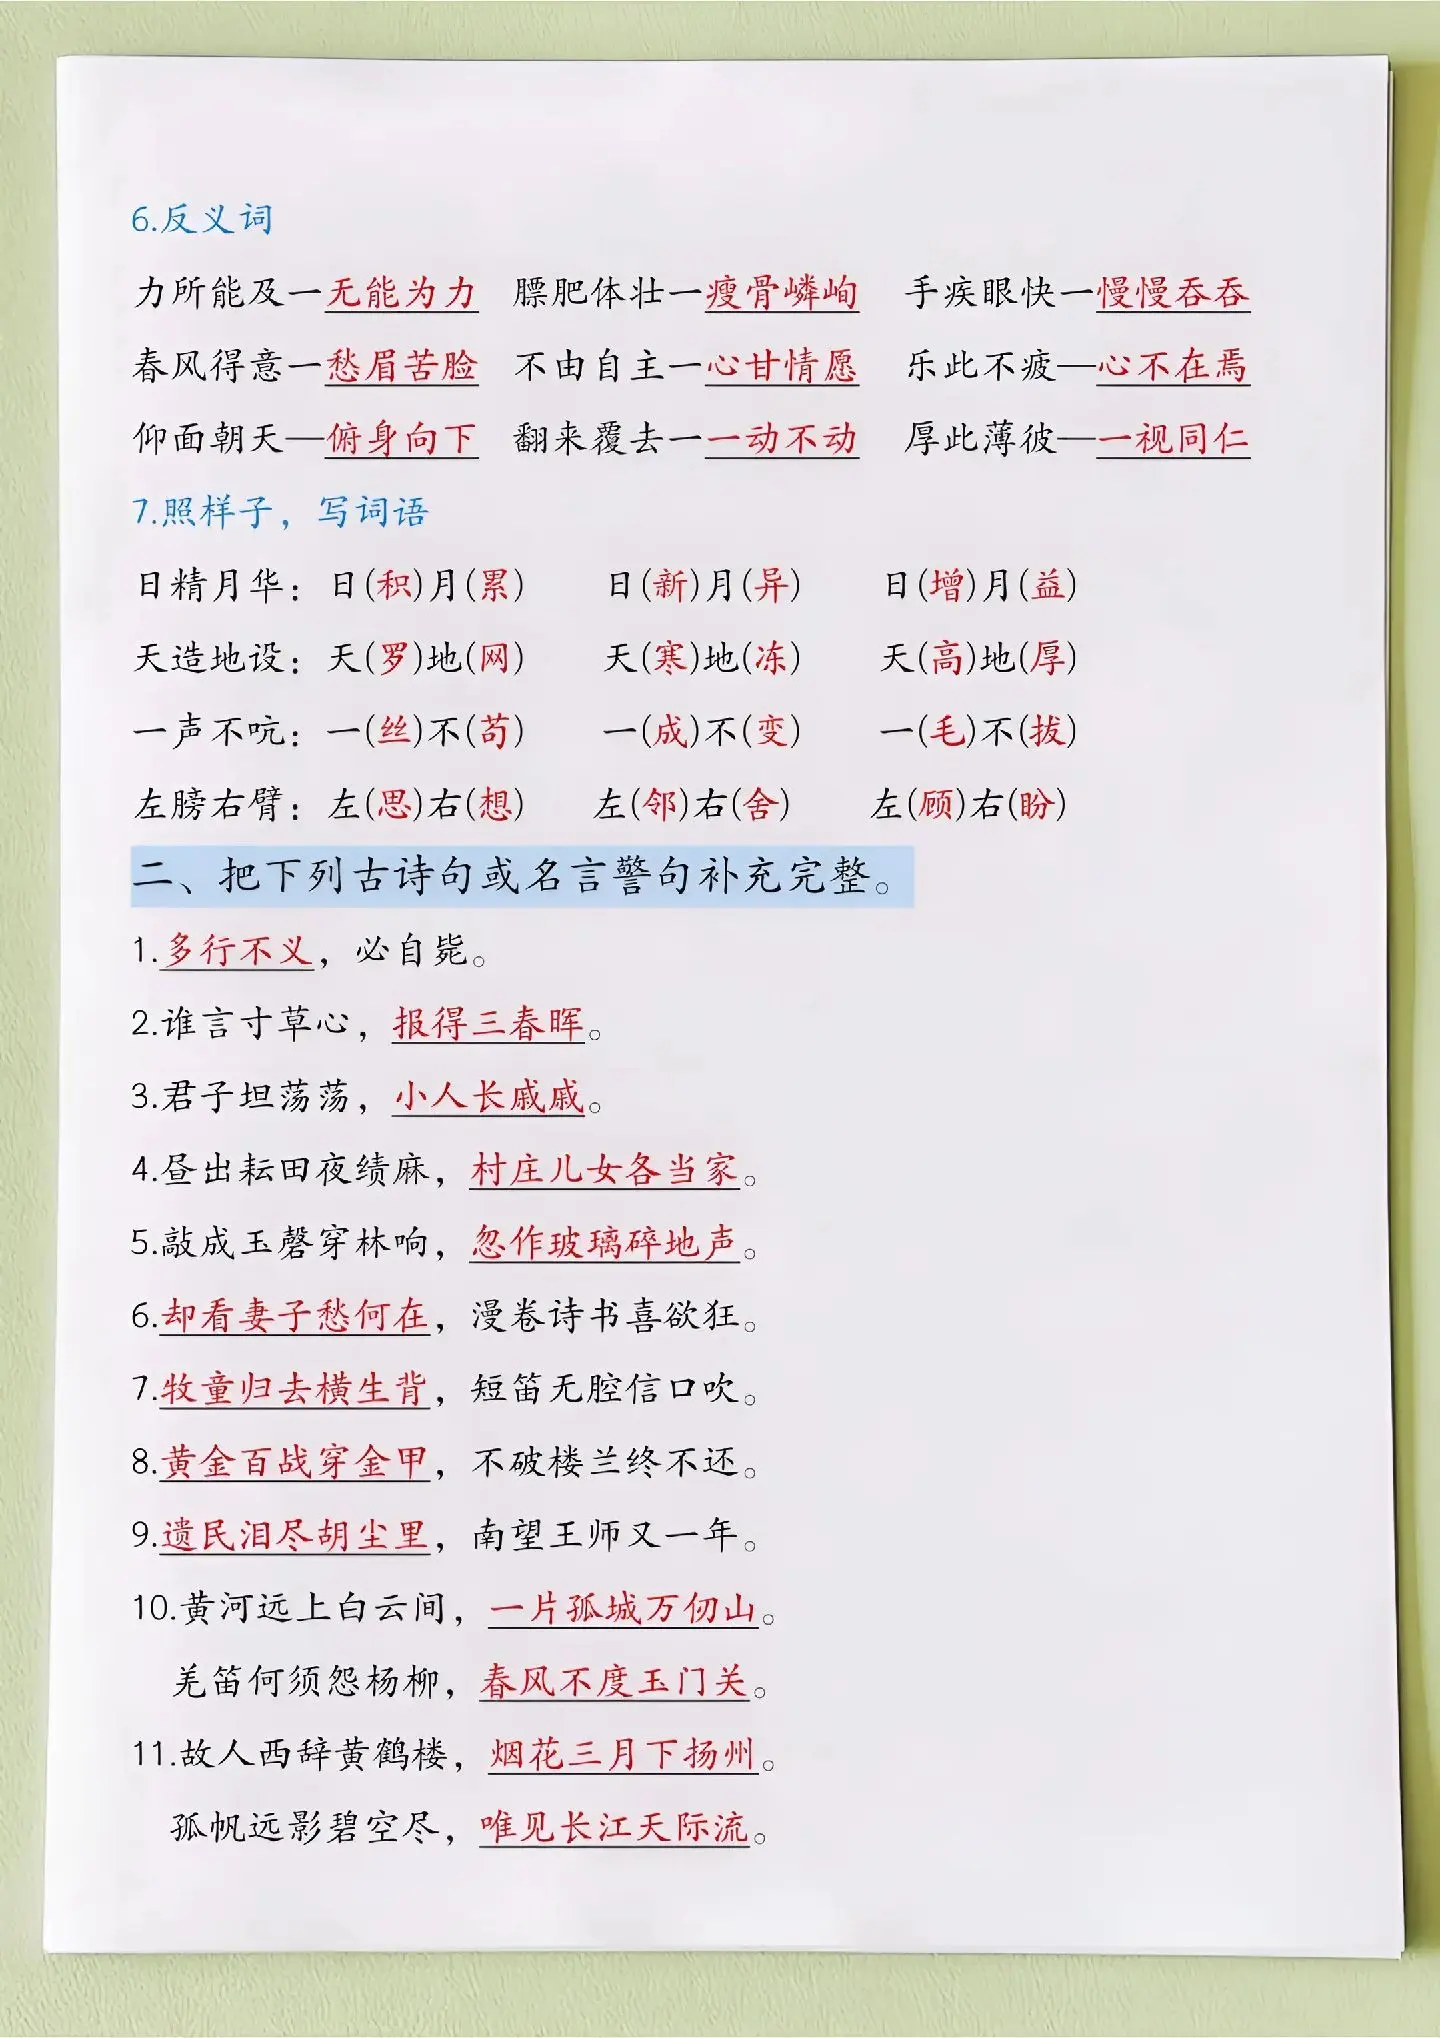 6.反义词
力所能及—无能为力 膘肥体壮—瘦骨嶙峋 手疾眼快—慢慢吞吞
春风得意—愁眉苦脸 不由自主—心甘情愿 乐此不疲—心不在焉
仰面朝天—俯身向下 翻来覆去—一动不动 厚此薄彼—一视同仁
7.照样子，写词语
日精月华：日(积)月(累) 日(新)月(异) 日(增)月(益)
天造地设：天(罗)地(网) 天(寒)地(冻) 天(高)地(厚)
一声不吭：一(丝)不(苟) 一(成)不(变) 一(毛)不(拔)
左膀右臂：左(思)右(想) 左(邻)右(舍) 左(顾)右(盼)
二、把下列古诗句或名言警句补充完整。
1.多行不义，必自毙。
2.谁言寸草心，报得三春晖。
3.君子坦荡荡，小人长戚戚。
4.昼出耘田夜绩麻，村庄儿女各当家。
5.敲成玉磬穿林响，忽作玻璃碎地声。
6.却看妻子愁何在，漫卷诗书喜欲狂。
7.牧童归去横生背，短笛无腔信口吹。
8.黄金百战穿金甲，不破楼兰终不还。
9.遗民泪尽胡尘里，南望王师又一年。
10.黄河远上白云间，一片孤城万仞山。
羌笛何须怨杨柳，春风不度玉门关。
11.故人西辞黄鹤楼，烟花三月下扬州。
孤帆远影碧空尽，唯见长江天际流。